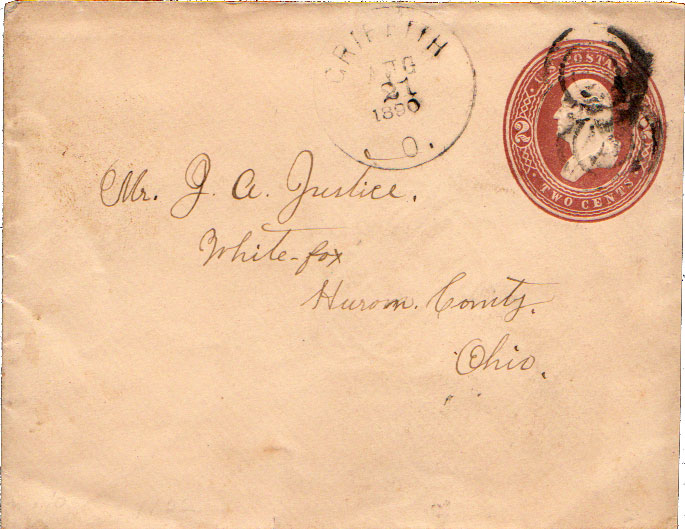 GRIFFITH
AUG
21
1890
O.
U.S. POSTAGE
2
TWO CENTS
Mr. J. A. Justice.
White-fox
Huron. County.
Ohio.